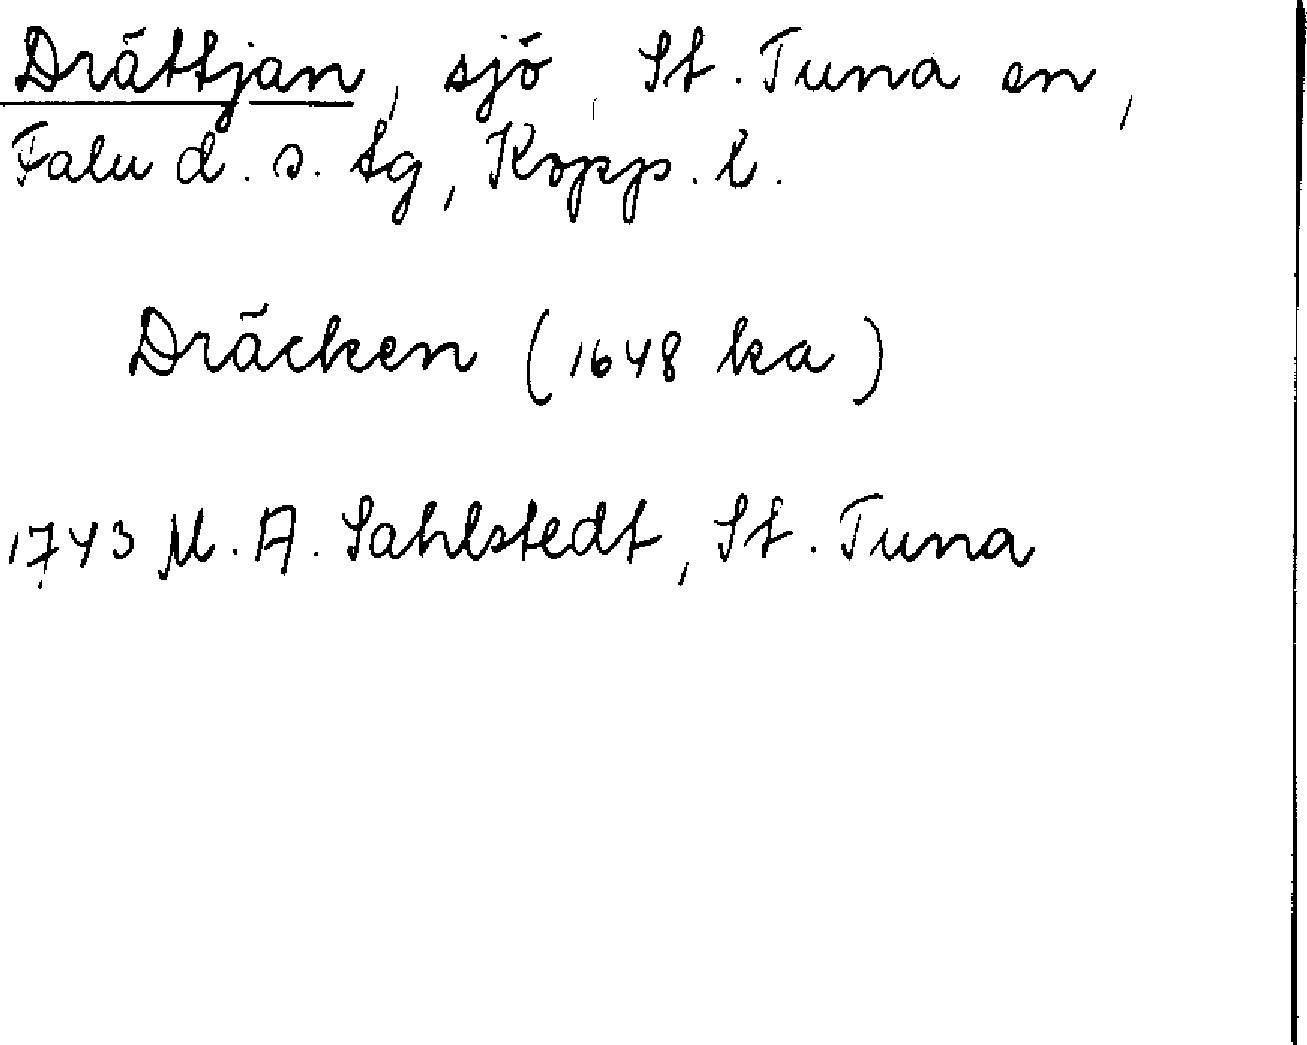 Drättjan, sjö, St. Tuna sn,
Falu d. s. tg, Kopp. l.
Dräcken (1648 ka)
1743 M. A. Sahlstedt, St. Tuna